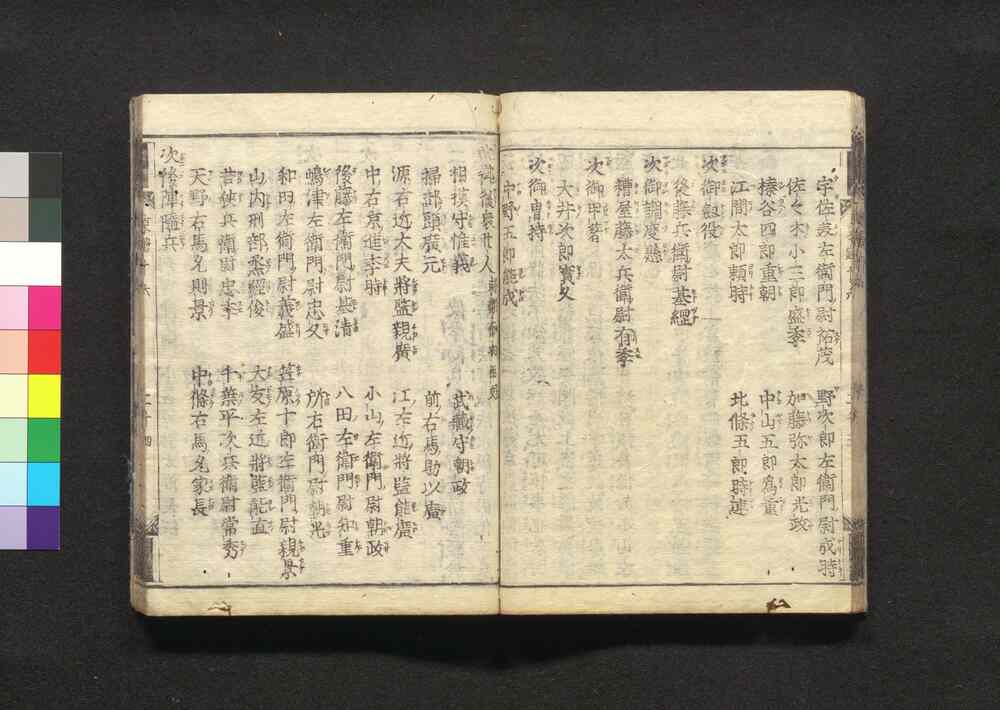 宇佐美左衛門尉祐茂　野次郎左衛門尉成時
佐々木小三郎盛季　加藤弥太郎光政
榛谷四郎重朝　中山五郎為重
江間太郎頼時　北條五郎時連
次御劔役
後藤兵衛尉基綱
次御調度懸
糟屋藤太兵衛尉有季
次御甲著
大井次郎實久
次御冑持
中野五郎能成
次御後衆廿人
相摸守惟義　武藏守朝政
掃部頭廣元　前右馬助以廣
源右近大夫將監親廣　江左近將監能廣
中右京進季時　小山左衛門尉朝政
後藤左衛門尉基清　八田左衛門尉知重
嶋津左衛門尉忠久　所右衛門尉朝光
和田左衛門尉義盛　笠原十郎左衛門尉親景
山内刑部丞經俊　大友左近將監能直
若狹兵衛尉忠季　千葉平次兵衛尉常秀
天野右馬允則景　中條右馬允家長
次後陣隨兵